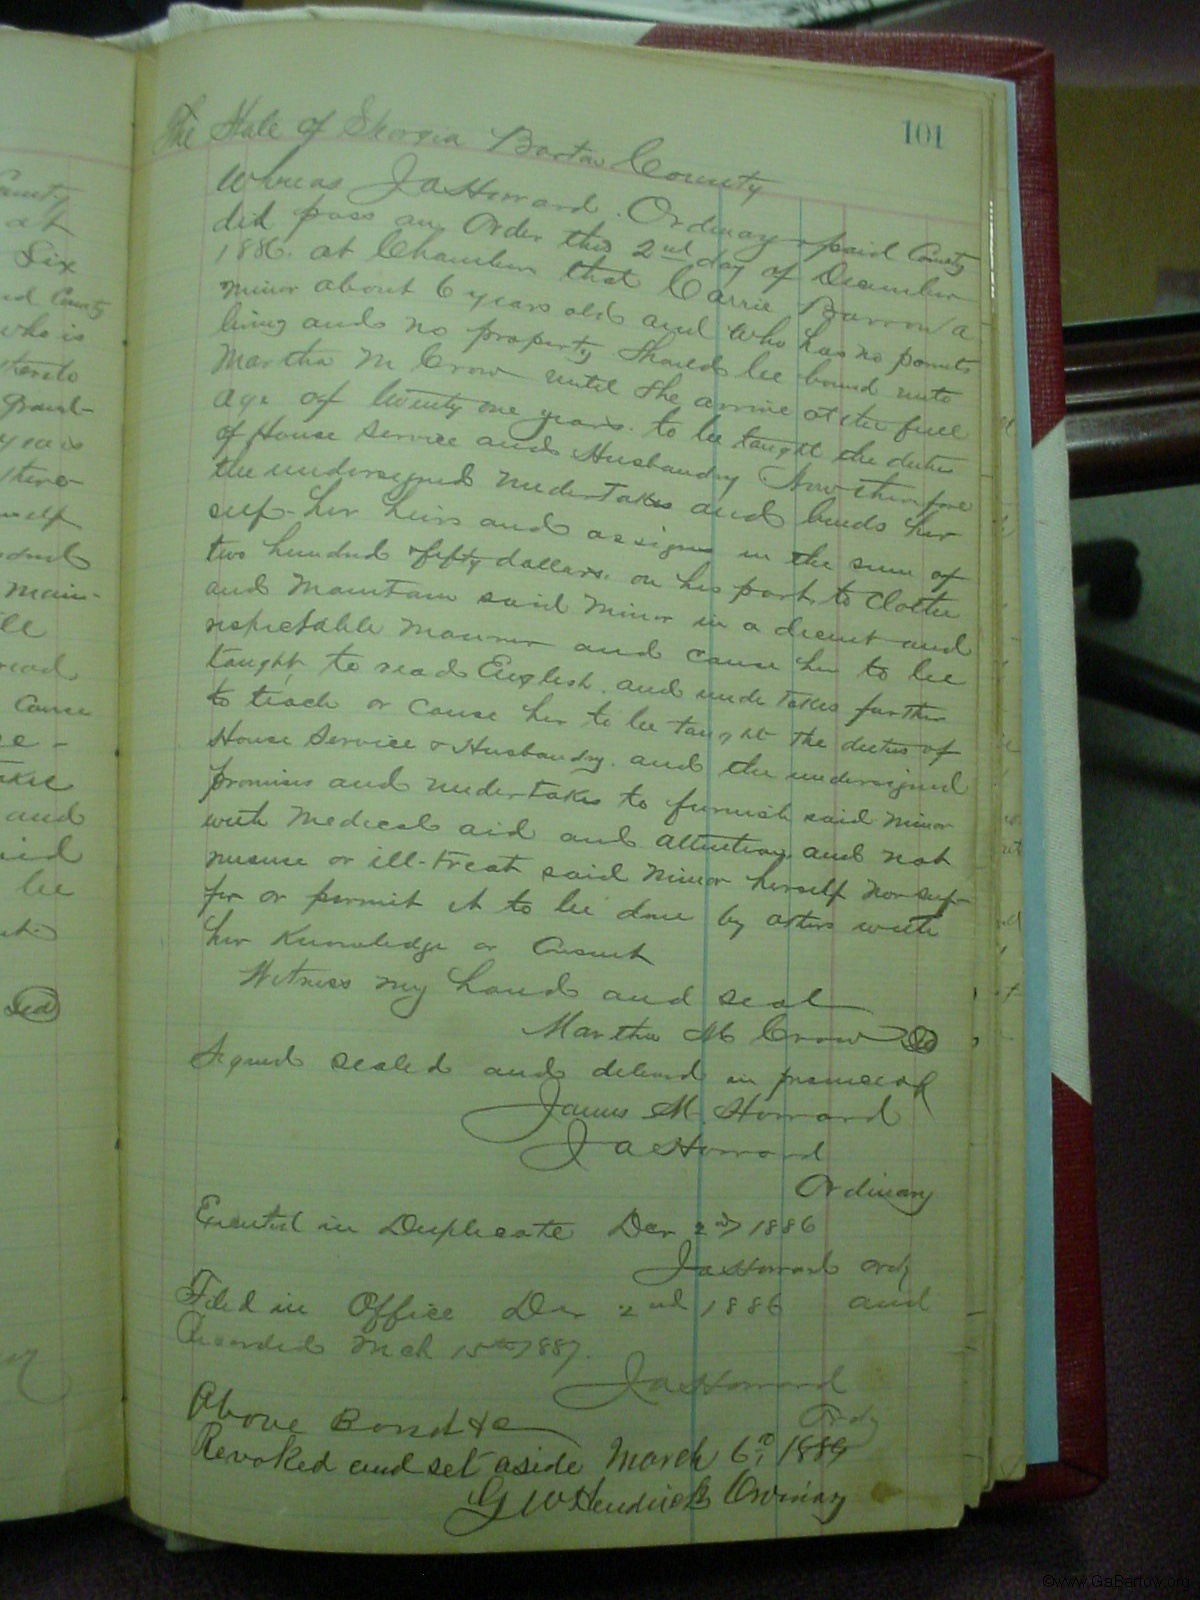 101
The State of Georgia Bartow County
Whereas J A Howard. Ordinary of said County
did pass an Order this 2nd day of December
1886. at Chambers that Carrie Barron a
minor about 6 years old and who has no parents
living and no property. Should be bound unto
Martha M Crow until she arrive at the full
age of twenty one years. to be taught the duties
of House Service and Husbandry Now therefore
the undersigned undertakes and binds her
self her heirs and assigns in the sum of
two hundred & fifty dollars. on his part to clothe
and maintain said minor in a decent and
respectable manner and cause her to be
taught to read English. and undertakes further
to teach or cause her to be taught the duties of
House Service & Husbandry. and the undersigned
promises and undertakes to furnish said minor
with medical aid and attention and not
misuse or ill-treat said minor herself nor suf-
fer or permit it to be done by others with
her knowledge or consent
Witness my hand and seal
Martha M Crow
Signed sealed and delivered in presence of
James M. Howard
J A Howard
Ordinary
Executed in Duplicate Dec 2nd 1886
J A Howard Ordy
Filed in Office Dec 2nd 1886 and
Recorded Mch 15th 1887.
J A Howard
Ordy
Above Bond &c
Revoked and set aside March 6th 1889
G W Hendricks Ordinary
County
at
Six
County
who is
thereto
grand-
years
there-
self
main-
read
cause
and
be
©www.GaBartow.org